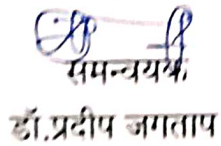 समन्वयक
डॉ.प्रदीप जगताप